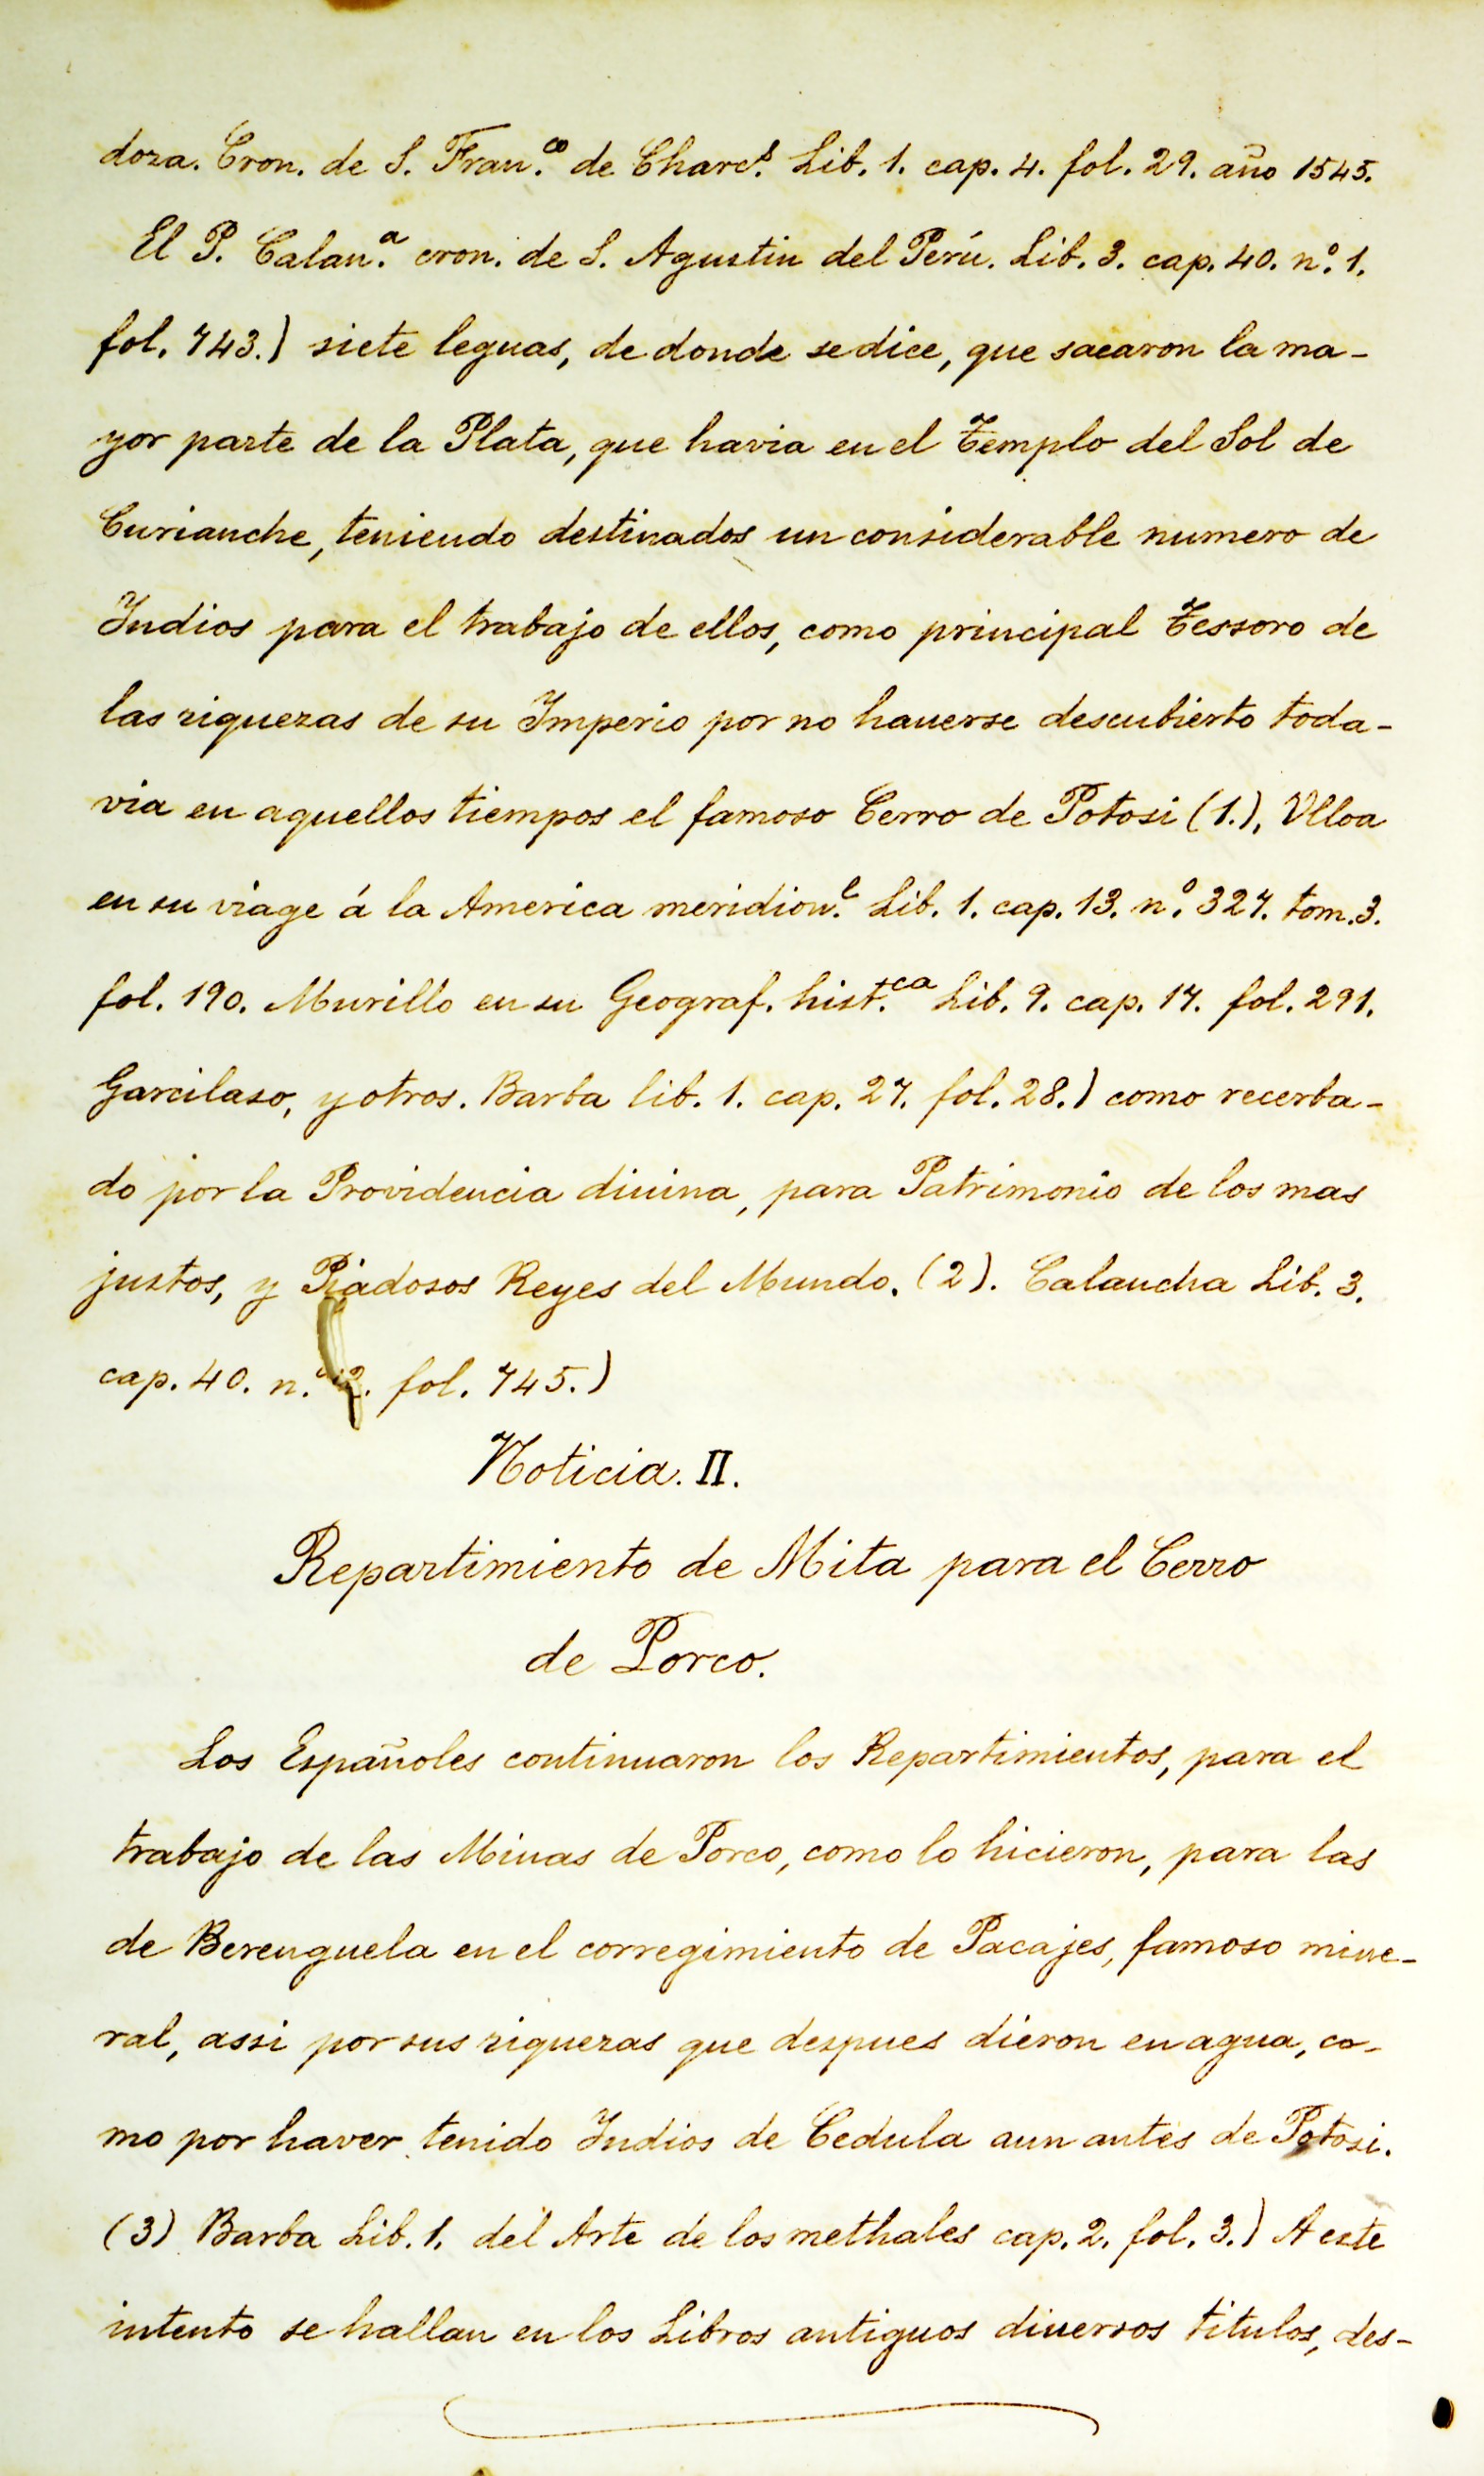 doza. Cron. de S. Fran.co de Charc.s Lib. 1. cap. 4. fol. 29. año 1545.
El P. Calan.a cron. de S. Agustin del Perú. Lib. 3. cap. 40. n.o 1.
fol. 743.) siete leguas, de donde se dice, que sacaron la ma-
yor parte de la Plata, que havia en el Templo del Sol de
Curianche, teniendo destinados un considerable numero de
Indios para el trabajo de ellos, como principal Tessoro de
las riquezas de su Imperio por no hauerse descubierto toda-
via en aquellos tiempos el famoso Cerro de Potosi (1.), Vlloa
en su viage á la America meridion.l Lib. 1. cap. 13. n.o 327. tom. 3.
fol. 190. Murillo en su Geograf. hist.ca Lib. 9. cap. 17. fol. 291.
Garcilaso, y otros. Barba lib. 1. cap. 27. fol. 28.) como recerba-
do por la Providencia diuina, para Patrimonio de los mas
justos, y Piadosos Reyes del Mundo. (2). Calaucha Lib. 3.
cap. 40. n.o 2. fol. 745.)
Noticia. II.
Repartimiento de Mita para el Cerro
de Porco.
Los Españoles continuaron los Repartimientos, para el
trabajo de las Minas de Porco, como lo hicieron, para las
de Berenguela en el corregimiento de Pacajes, famoso mine-
ral, assi por sus riquezas que despues dieron en agua, co-
mo por haver tenido Indios de Cedula aun antes de Potosi.
(3) Barba Lib. 1. del Arte de los methales cap. 2. fol. 3.) A este
intento se hallan en los Libros antiguos diuersos titulos, des-